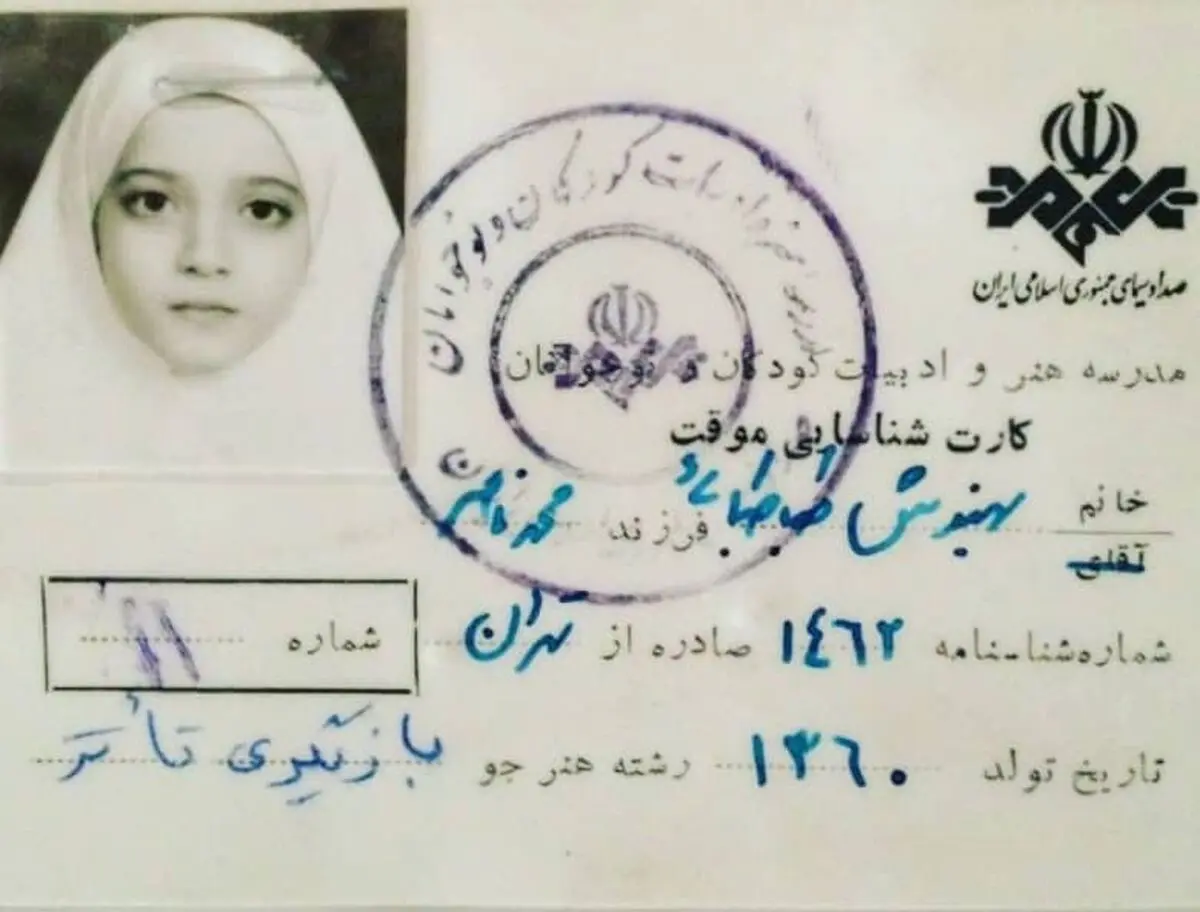 صدا و سیمای جمهوری اسلامی ایران
مدرسه هنر و ادبیات کودکان و نوجوانان
کارت شناسایی موقت
خانم
آقای
بهنوش طباطبائی فرزند محمد ناصر
شماره شناسنامه ۱٤٦۲ صادره از تهران
شماره
تاریخ تولد ۱۳٦۰ رشته هنر جو بازیگری تأتر
مدرسه هنر و ادبیات کودکان و نوجوانان